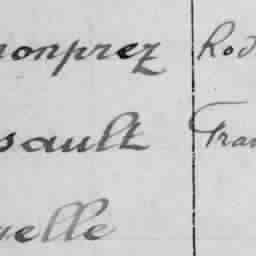 nonprez Rod
sault Fran
uelle